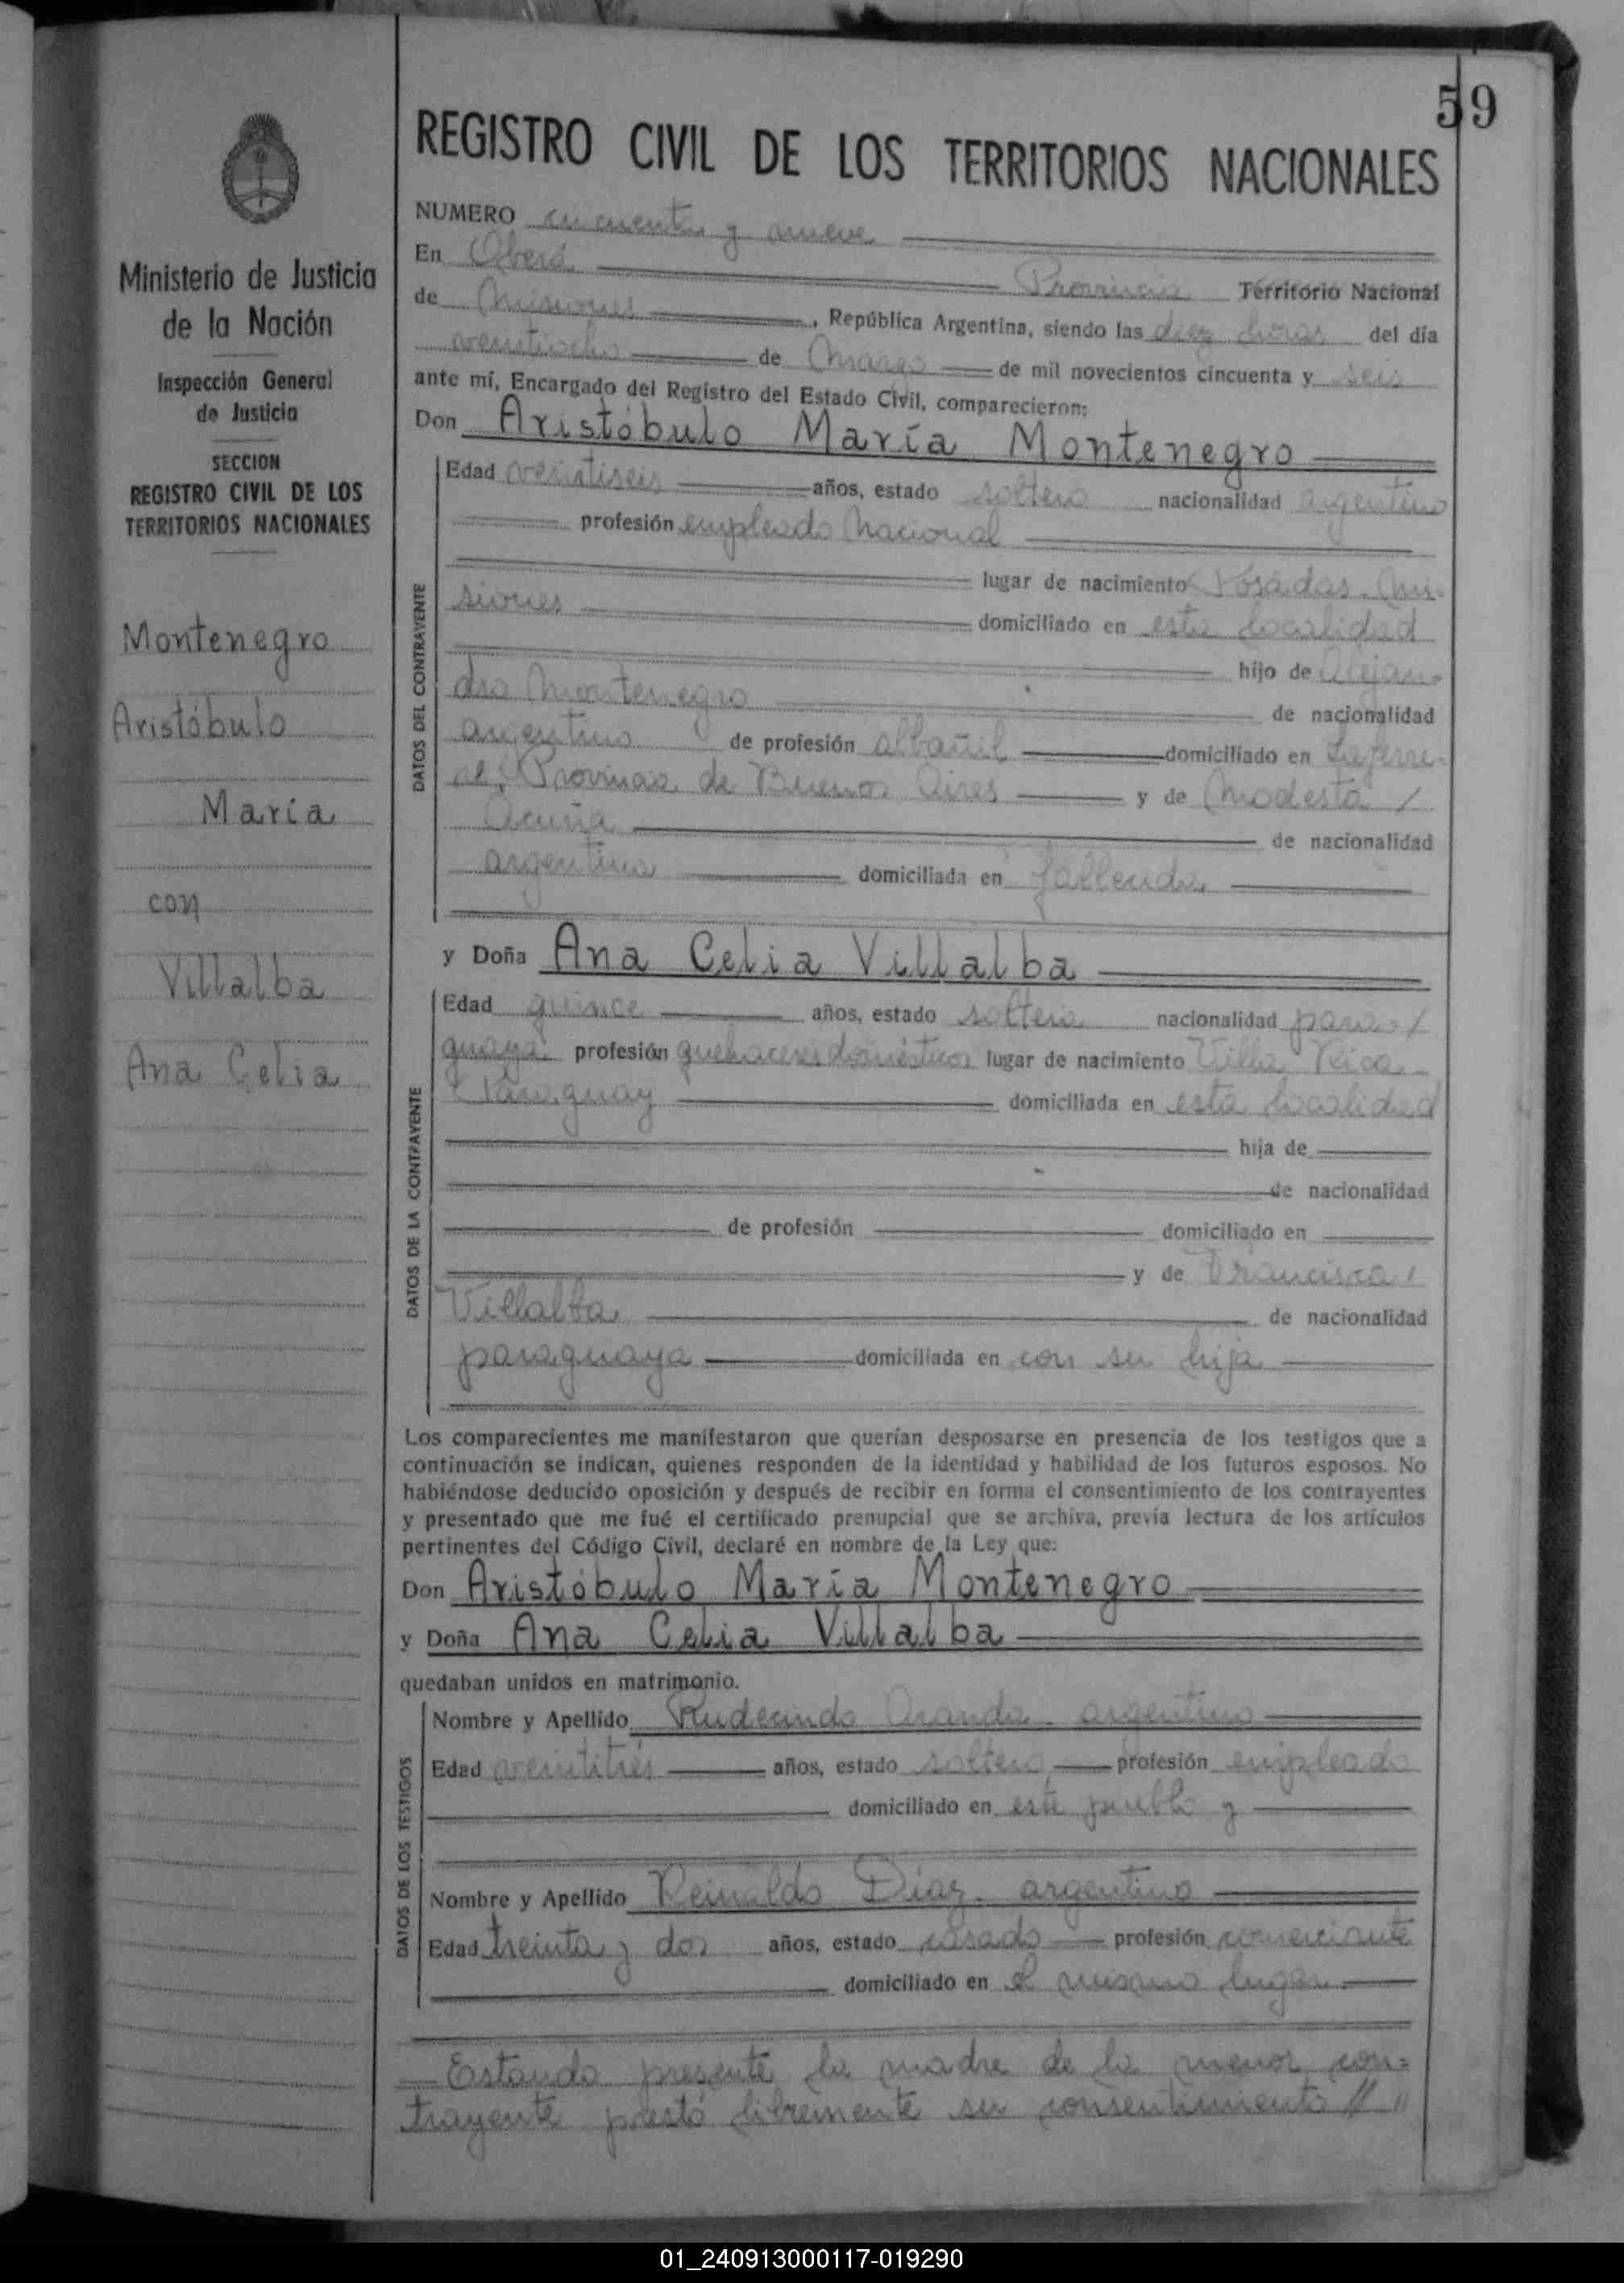 59
REGISTRO CIVIL DE LOS TERRITORIOS NACIONALES
Ministerio de Justicia
de la Nación
Inspección General
de Justicia
SECCION
REGISTRO CIVIL DE LOS
TERRITORIOS NACIONALES
Montenegro
Aristóbulo
María
con
Villalba
Ana Celia
NUMERO cincuenta y nueve
En Oberá Provincia Territorio Nacional
de Misiones, República Argentina, siendo las diez horas del día
veintiocho de Marzo de mil novecientos cincuenta y seis
ante mí, Encargado del Registro del Estado Civil, comparecieron:
Don Aristóbulo María Montenegro
DATOS DEL CONTRAYENTE
Edad veintiseis años, estado soltero nacionalidad argentino
profesión empleado Nacional
lugar de nacimiento Posadas. Mi-
siones domiciliado en esta localidad
hijo de Alejan-
dro Montenegro de nacionalidad
argentino de profesión albañil domiciliado en Laferre-
re, Provincia de Buenos Aires y de Modesta /
Acuña de nacionalidad
argentina domiciliada en fallecida
y Doña Ana Celia Villalba
DATOS DE LA CONTRAYENTE
Edad quince años, estado soltera nacionalidad para-/
guaya profesión quehaceres domésticos lugar de nacimiento Villa Rica
Paraguay domiciliada en esta localidad
hija de
de nacionalidad
de profesión domiciliado en
y de Francisca /
Villalba de nacionalidad
paraguaya domiciliada en con su hija
Los comparecientes me manifestaron que querían desposarse en presencia de los testigos que a
continuación se indican, quienes responden de la identidad y habilidad de los futuros esposos. No
habiéndose deducido oposición y después de recibir en forma el consentimiento de los contrayentes
y presentado que me fué el certificado prenupcial que se archiva, previa lectura de los artículos
pertinentes del Código Civil, declaré en nombre de la Ley que:
Don Aristóbulo María Montenegro
y Doña Ana Celia Villalba
quedaban unidos en matrimonio.
DATOS DE LOS TESTIGOS
Nombre y Apellido Rudecindo Aranda. argentino
Edad veintitrés años, estado soltero profesión empleado
domiciliado en este pueblo y
Nombre y Apellido Reinaldo Diaz. argentino
Edad treinta y dos años, estado casado profesión comerciante
domiciliado en el mismo lugar.
Estando presente la madre de la menor con=
trayente prestó libremente su consentimiento // "
01_240913000117-019290